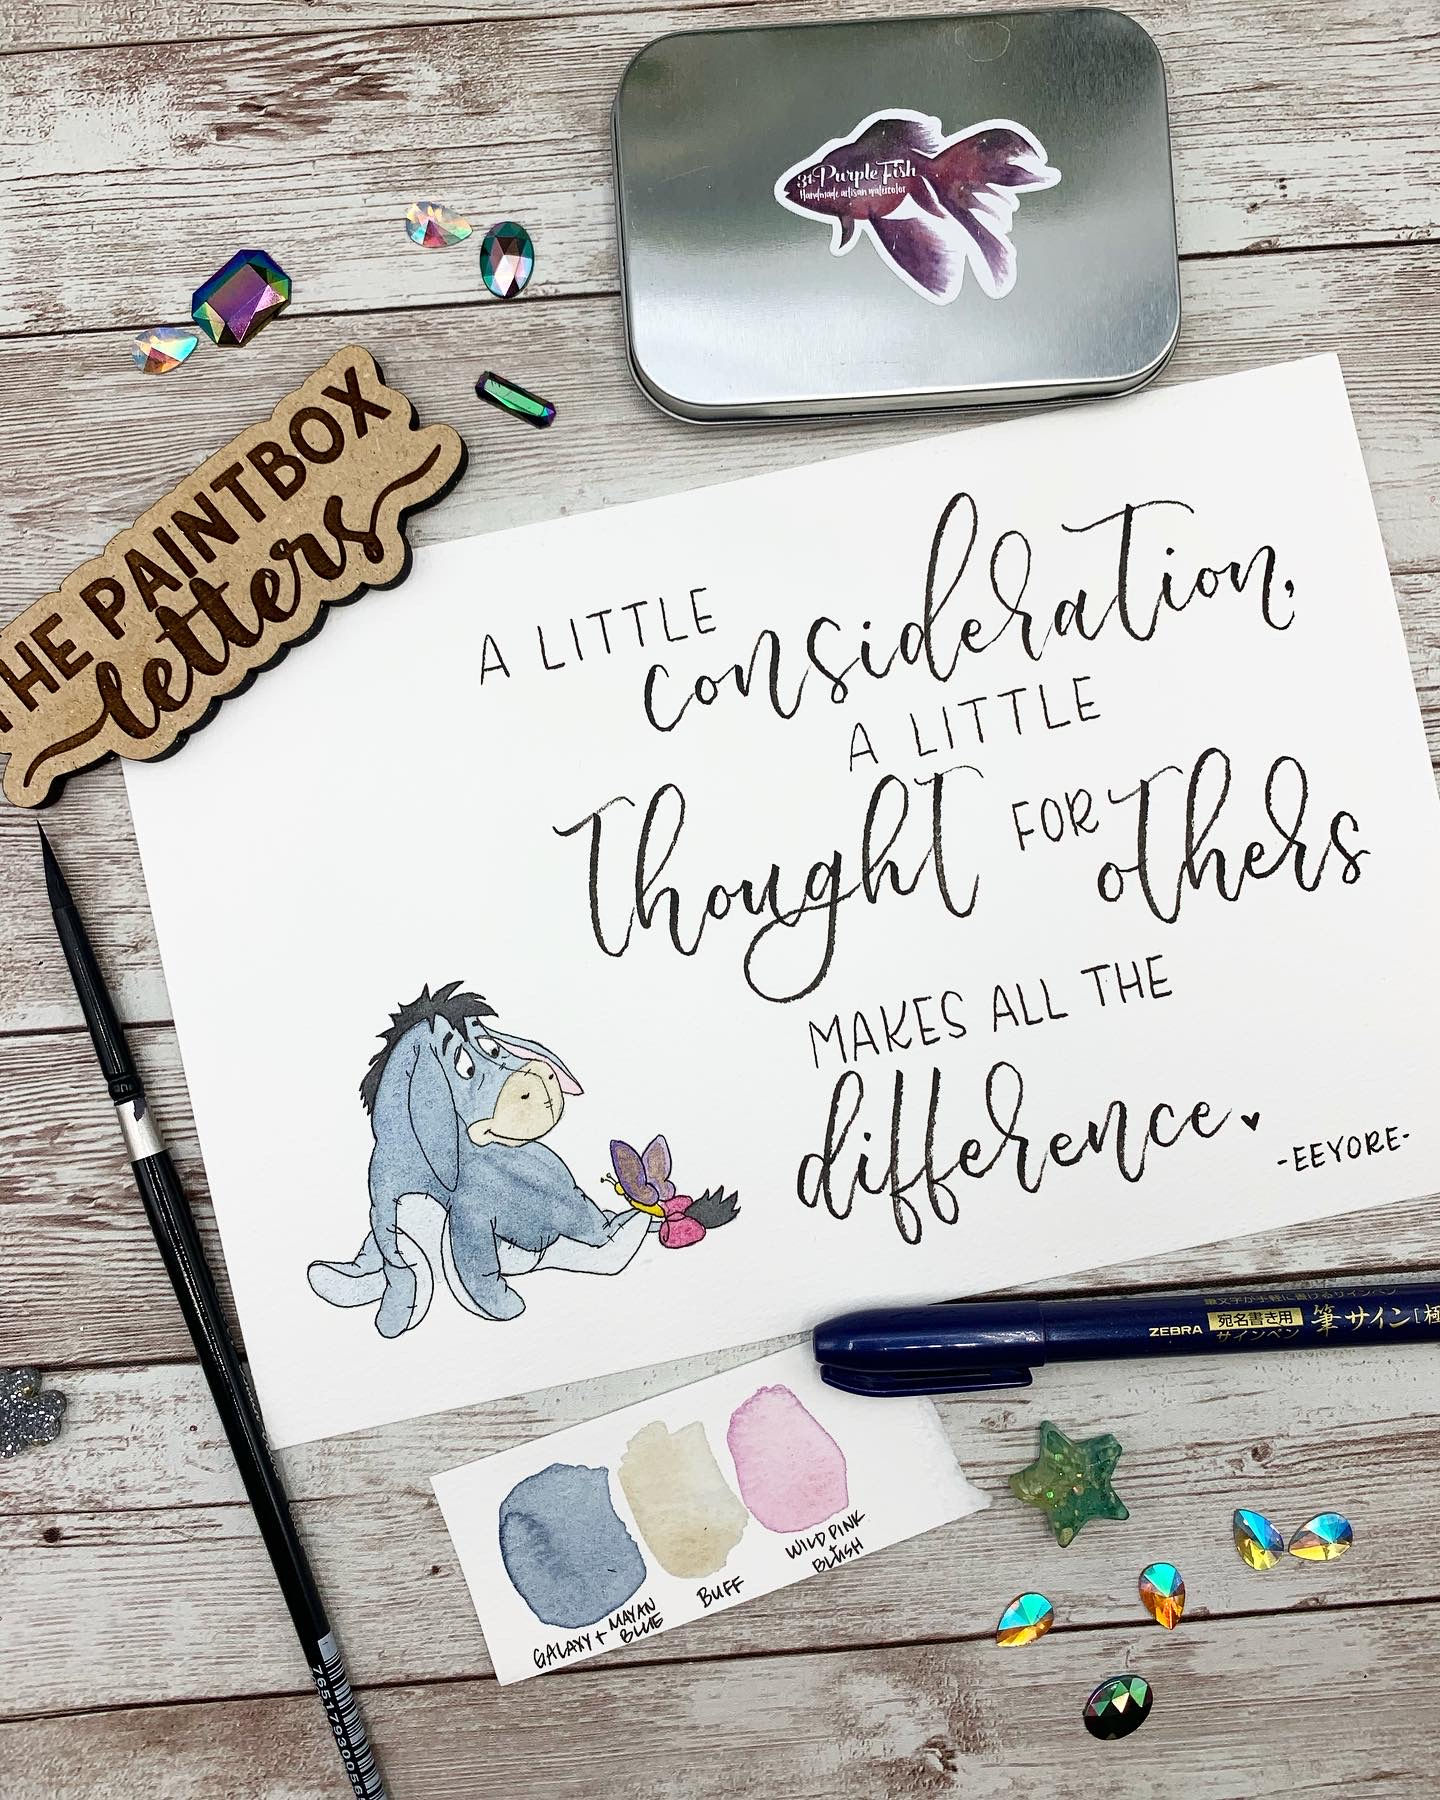 31 Purple Fish
Handmade artisan watercolor
THE PAINTBOX
letters
A LITTLE
consideration,
A LITTLE
thought FOR others
MAKES ALL THE
difference.
-EEYORE-
ZEBRA 宛名書き用 サインペン 筆サイン［極
GALAXY + MAYAN BLUE
BUFF
WILD PINK
+
BLUSH